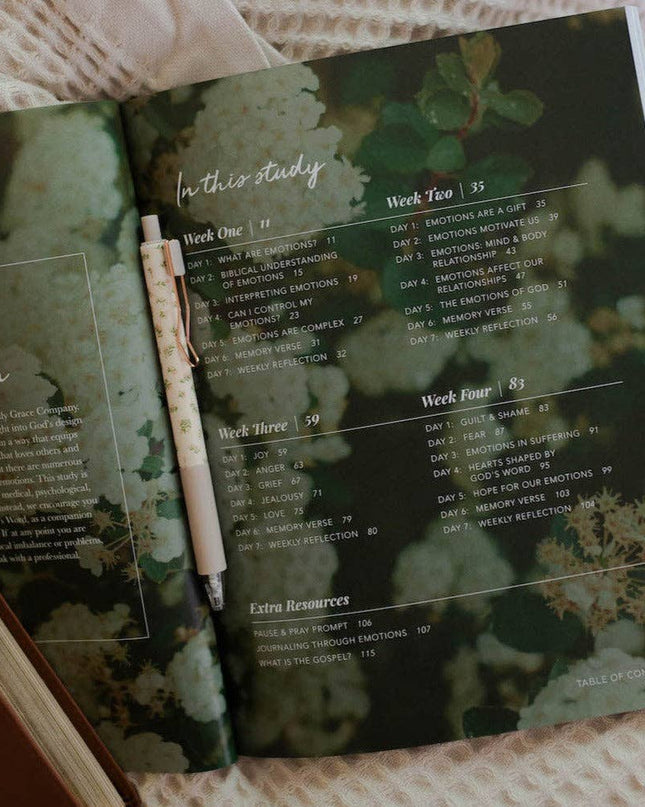 ly Grace Company.
ht into God's design
n a way that equips
hat loves others and
t there are numerous
notions. This study is
medical, psychological,
stead, we encourage you
Word, as a companion
If at any point you are
cal imbalance or problems,
k with a professional.
In this study
Week One | 11
DAY 1: WHAT ARE EMOTIONS? 11
DAY 2: BIBLICAL UNDERSTANDING
OF EMOTIONS 15
DAY 3: INTERPRETING EMOTIONS 19
DAY 4: CAN I CONTROL MY
EMOTIONS? 23
DAY 5: EMOTIONS ARE COMPLEX 27
DAY 6: MEMORY VERSE 31
DAY 7: WEEKLY REFLECTION 32
Week Two | 35
DAY 1: EMOTIONS ARE A GIFT 35
DAY 2: EMOTIONS MOTIVATE US 39
DAY 3: EMOTIONS: MIND & BODY
RELATIONSHIP 43
DAY 4: EMOTIONS AFFECT OUR
RELATIONSHIPS 47
DAY 5: THE EMOTIONS OF GOD 51
DAY 6: MEMORY VERSE 55
DAY 7: WEEKLY REFLECTION 56
Week Three | 59
DAY 1: JOY 59
DAY 2: ANGER 63
DAY 3: GRIEF 67
DAY 4: JEALOUSY 71
DAY 5: LOVE 75
DAY 6: MEMORY VERSE 79
DAY 7: WEEKLY REFLECTION 80
Week Four | 83
DAY 1: GUILT & SHAME 83
DAY 2: FEAR 87
DAY 3: EMOTIONS IN SUFFERING 91
DAY 4: HEARTS SHAPED BY
GOD'S WORD 95
DAY 5: HOPE FOR OUR EMOTIONS 99
DAY 6: MEMORY VERSE 103
DAY 7: WEEKLY REFLECTION 104
Extra Resources
PAUSE & PRAY PROMPT 106
JOURNALING THROUGH EMOTIONS 107
WHAT IS THE GOSPEL? 115
TABLE OF CON